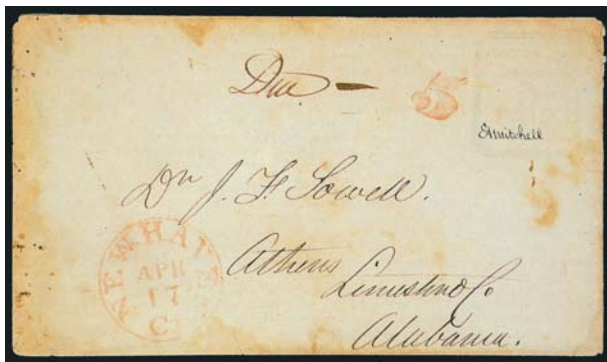 Due 5
E A Mitchell
Dr J. F. Sowell.
Athens
Limestone Co
Alabama.
NEW HAVEN
APR
17
Ct